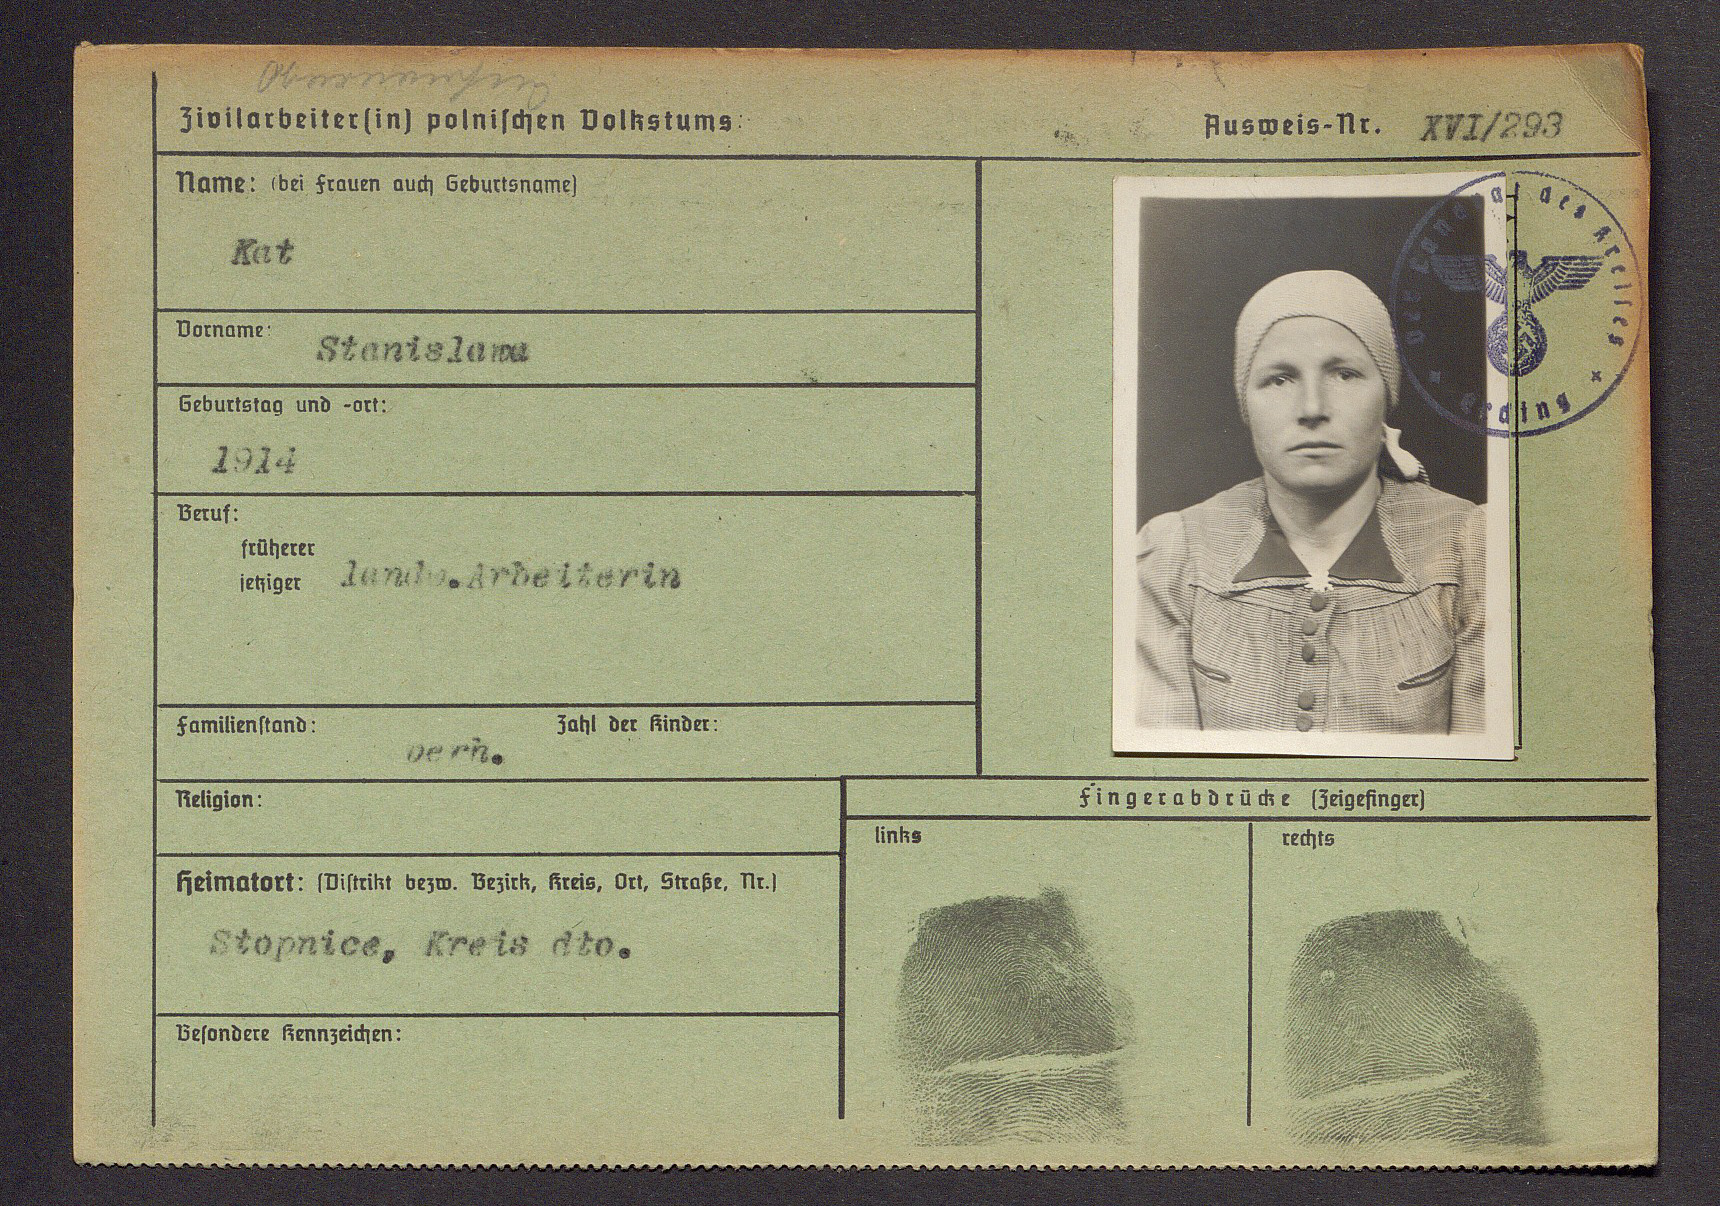 Zivilarbeiter(in) polnischen Volkstums:
Ausweis-Nr. XVI/293
Name: (bei Frauen auch Geburtsname)
Kat
Vorname: Stanislawa
Geburtstag und -ort:
1914
Beruf:
früherer
jetziger landw.Arbeiterin
Familienstand: Zahl der Kinder:
verh.
Religion:
Heimatort: (Distrikt bezw. Bezirk, Kreis, Ort, Straße, Nr.)
Stopnice, Kreis dto.
Besondere Kennzeichen:
Der Landrat des Kreises
Erding
Fingerabdrücke (Zeigefinger)
links
rechts